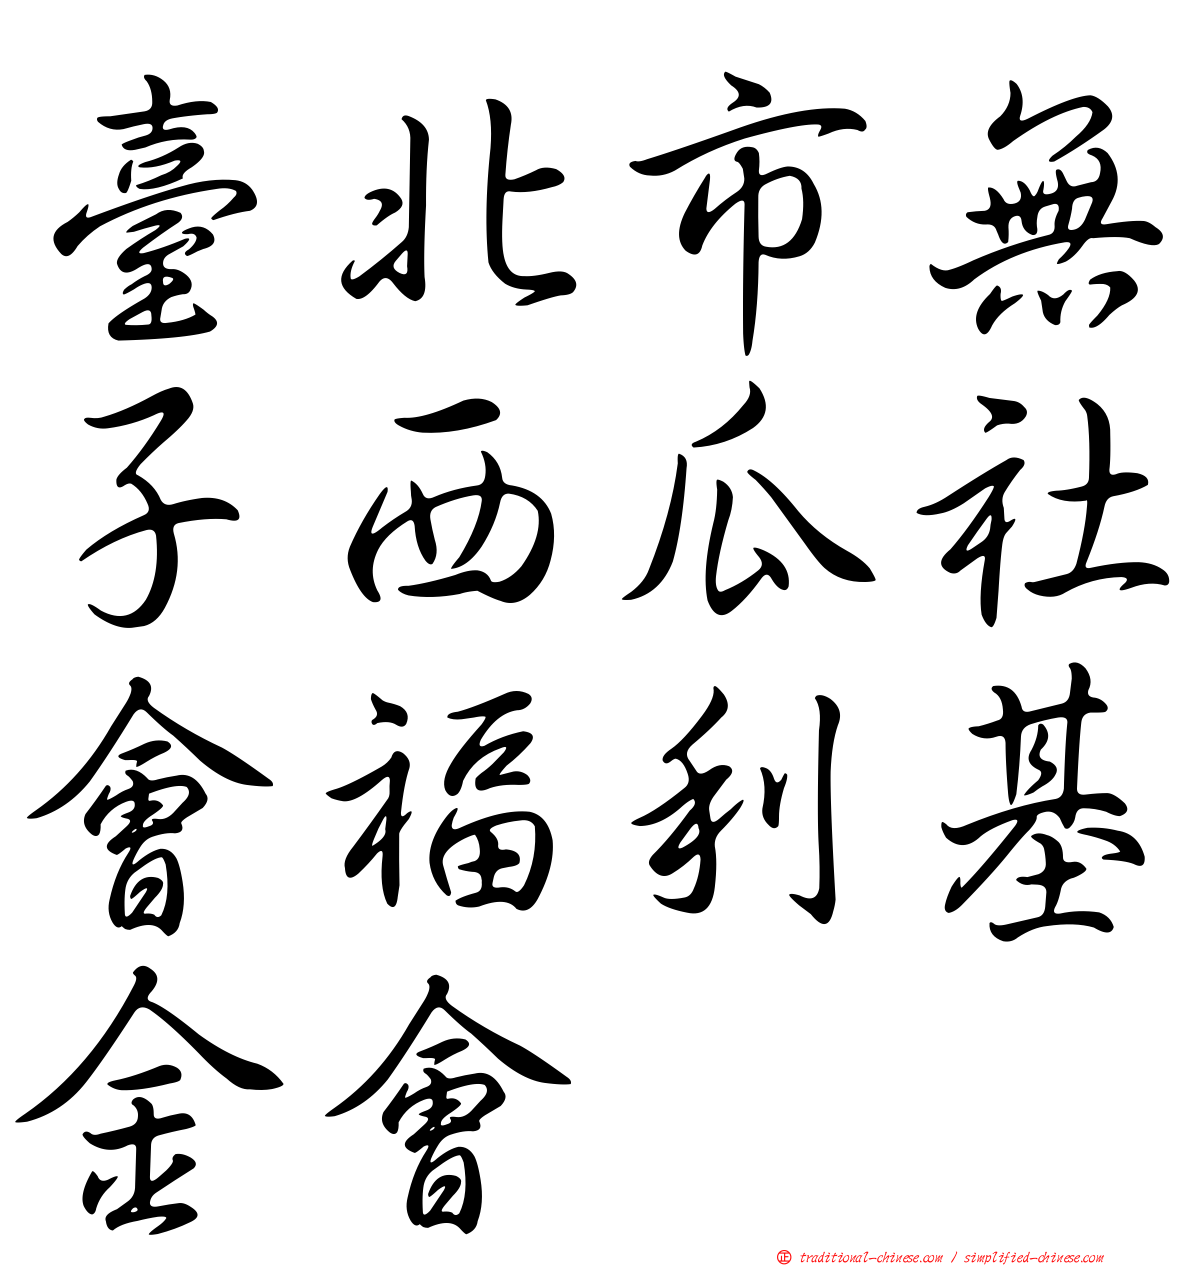 臺北市無
子西瓜社
會福利基
金會
正 traditional-chinese.com / simplified-chinese.com